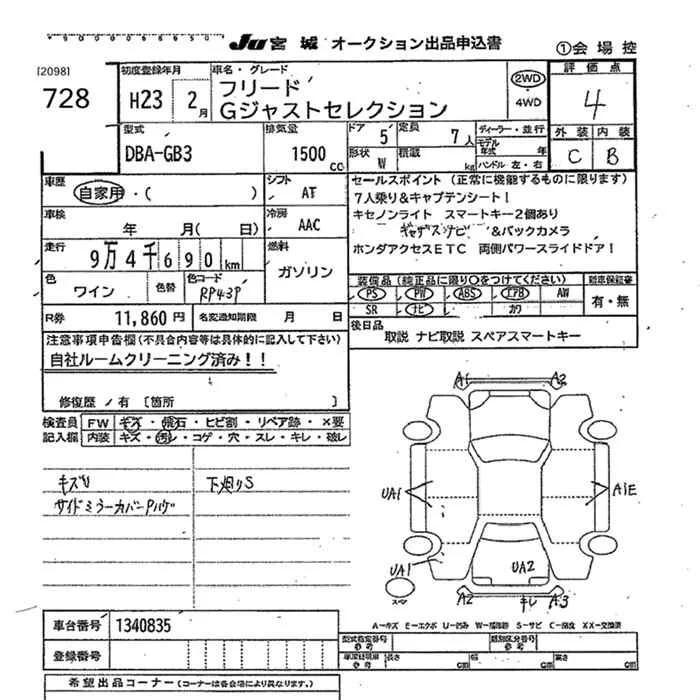 Ju 宮城 オークション出品申込書
①会場控
[2098]
728
初度登録年月
H23 2月
車名・グレード
フリード
Gジャストセレクション
2WD
4WD
評価点
4
外装 内装
C B
型式
DBA-GB3
排気量
1500 cc
ドア 5
定員 7人
形状 W
積載 kg
ディーラー・並行
モデル年式 年
ハンドル 左・右
車歴
自家用・( )
シフト
AT
車検
年 月( 日)
冷房
AAC
走行
9万4千690km
燃料
ガソリン
色
ワイン
色替
色コード
RP43P
R券
11,860円
名変通知期限 月 日
セールスポイント (正常に機能するものに限ります)
7人乗り&キャプテンシート!
キセノンライト スマートキー2個あり
ナビ &バックカメラ
ホンダアクセスETC 両側パワースライドドア!
装備品 (純正品に限り○をつけてください)
PS PW ABS エアB AW
SR ナビ カワ
新車保証書
有・無
後日品
取説 ナビ取説 スペアスマートキー
注意事項申告欄(不具合内容等は具体的に記入して下さい)
自社ルームクリーニング済み!!
修復歴 / 有 [箇所 ]
検査員記入欄
FW キズ・飛石・ヒビ割・リペア跡・×要
内装 キズ・汚レ・コゲ・穴・スレ・キレ・破レ
キズU
サイドミラーカバーPハゲ
下廻りS
A1 A2
UA1 A1E
UA1 UA2
A2 キレ A3
スペア
A-キズ E-エクボ U-凹み W-補修跡 S-サビ C-腐食 XX-交換済
車台番号
1340835
登録番号
型式指定番号 参考
類別区分番号 参考
長さ cm 幅 cm 高さ cm
希望出品コーナー (コーナーは各会場により異なります。)